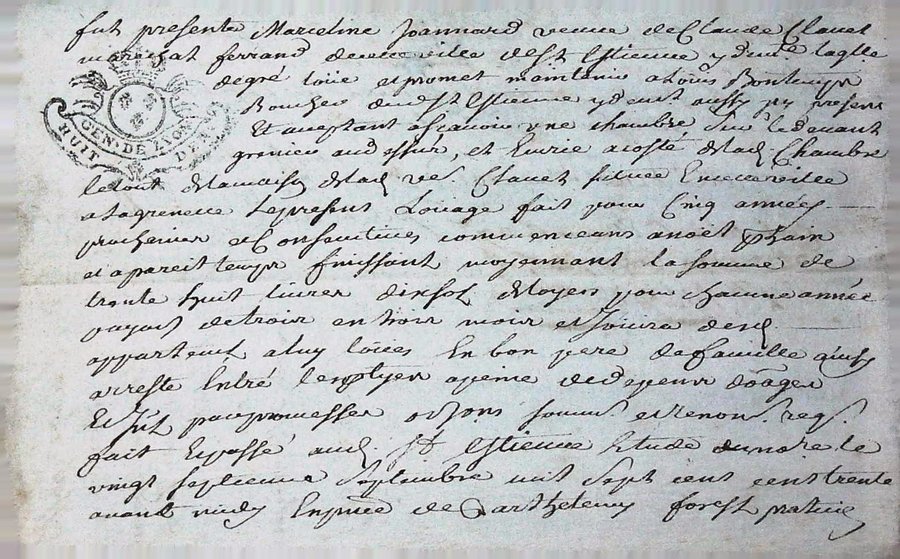 fut presente Marceline Joannard veuve de Claude Clavet
marchat ferrand de cette ville de St Estienne y dmte laqlle
de gré loüe et promet maintenir a Loüis Bontemps
Boucher dud St Estienne y demt aussy icy present
Et acceptant ascavoir une chambre sur le devant
grenier au dessus, et Ecurie a costé de lad Chambre
le tout de la maison de lad ve Clavet située En cette ville
a la grenette Le present Loüage fait pour Cinq années
prochaines et Consecutives commenceans a noel prochain
et a pareil temps finissant moyennant la somme de
trente huit livres dix sols de loyer pour chacune année
payable de trois en trois mois et Joüira desd
appartemts a luy loües En bon pere de famille ainsy
arresté Entre les partyes a peine de depens doāges
Et Jnt par promesses obons soumis et renons reqs
fait Et passé aud St Estienne Etude du nore le
vingt septieme Septembre mil Sept cent cent trente
avant midy En pnce de Barthelemy forest praticien
GEN. DE LYON
HUIT DEN